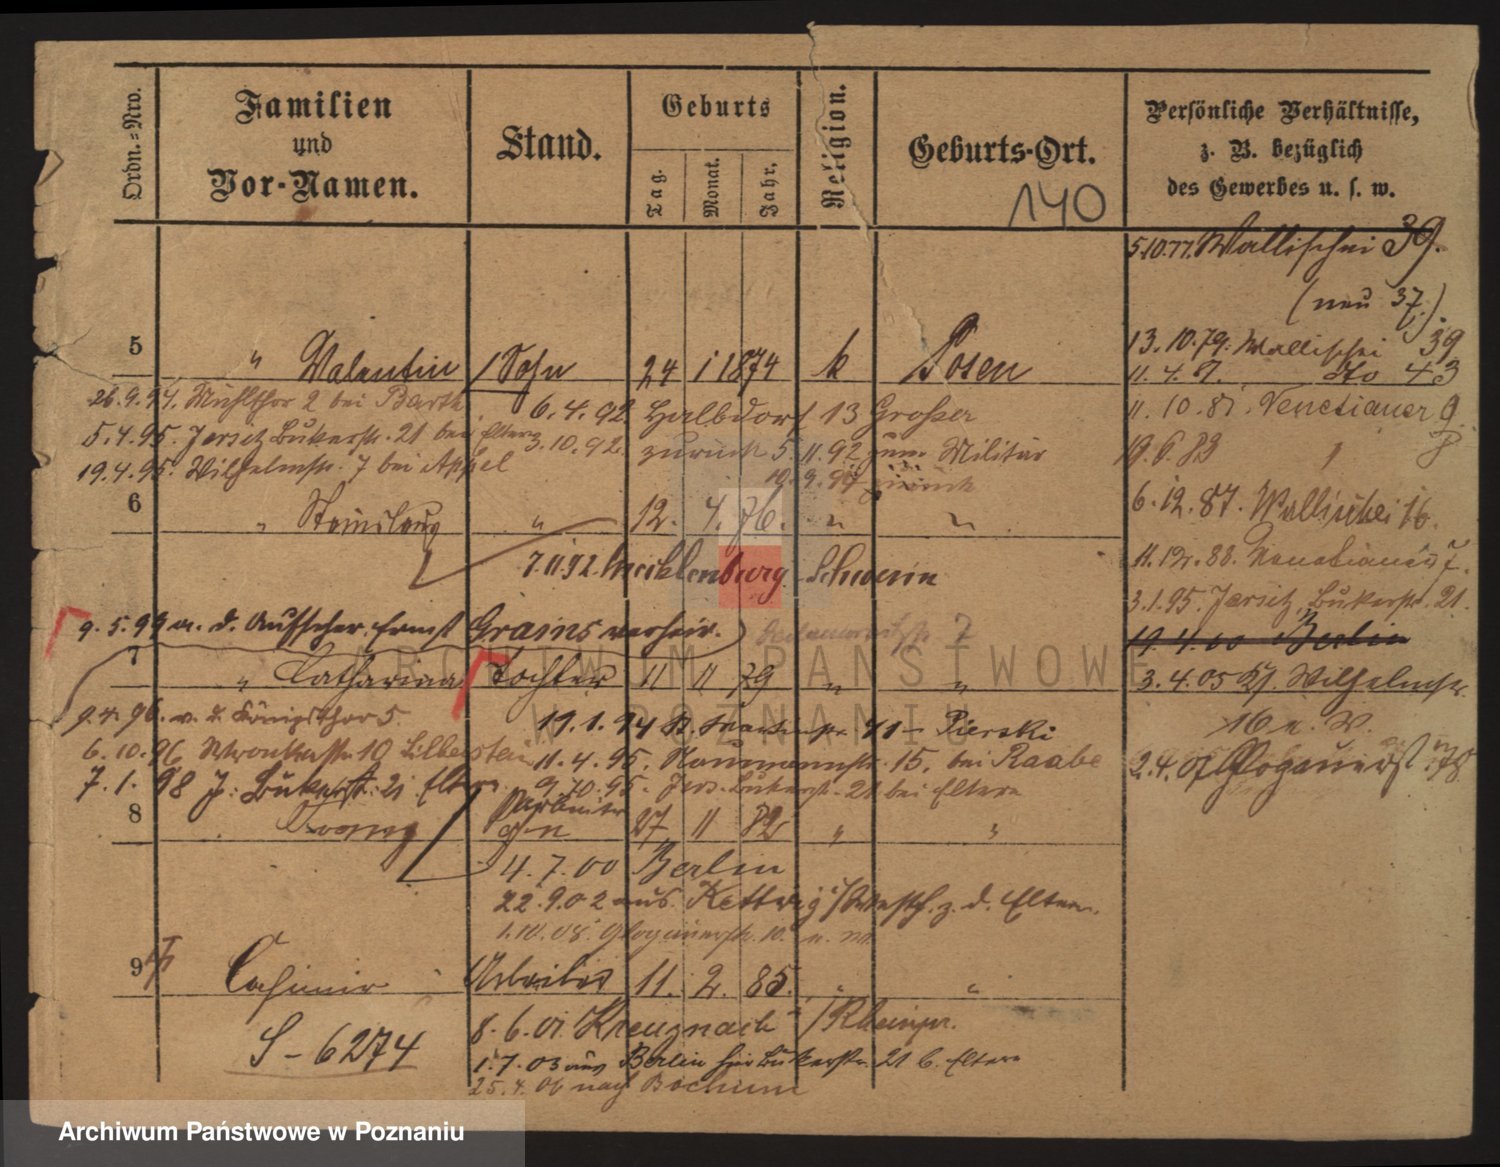 Ordn.-Nro.
Familien
und
Vor-Namen.
Stand.
Geburts
Tag.
Monat.
Jahr.
Religion.
Geburts-Ort.
140
Persönliche Verhältnisse,
z. B. bezüglich
des Gewerbes u. s. w.
5.10.77. Wallischei 39.
(neu 37.)
13.10.79. Wallischei 39
11.4.81. do 43
11.10.81. Venetianer 9
19.6.82 " 8
6.12.87. Wallischei 16.
11.12.88. Venetianer 7.
3.1.95. Jersitz, Bukerstr. 21.
19.4.00 Berlin
3.4.05 Wilhelmstr.
16
2.4.08 Glogauerstr 78
5 " Valentin Sohn 24 1 1874 k Posen
26.9.94. Mühlthor 2 bei Barth
6.4.92. Halbdorf 13 Grosser
5.4.95. Jersitz Bukerstr. 21 bei Eltern
3.10.92. zurück 5.11.92 zum Militär
19.4.95. Wilhelmstr. 7 bei Appel
zurück
6 " Stanislaus " 12. 4. 76. " "
7.11.92. Mecklenburg Schwerin
9.5.99 a. d. Aufseher Ernst Grains verheir.
7 " Catharina Tochter 11 11 79 " "
9.4.96. Königsthor 5.
19.1.94 St. Martinstr. 41 Pierski
6.10.96 10 Lilberstein
11.4.95. Naumannstr. 15. bei Raabe
7.1.98 J. Bukerstr. 21 Eltern
9.10.95. Jers. Bukerstr. 21 bei Eltern
8 Franz Arbeiter 27 11 82 " "
4.7.00 Berlin
22.9.02 aus Kettwig / Westf. z. d. Eltern.
1.10.08. Glogauerstr.
9 Casimir Arbeiter 11. 2. 85. " "
8.6.01 Kreuznach / Rheinpr.
S-6274
1.7.03 aus Berlin hier Bukerstr. 21 b. Eltern
25.4.06 nach Bochum
ARCHIWUM PAŃSTWOWE
W POZNANIU
Archiwum Państwowe w Poznaniu